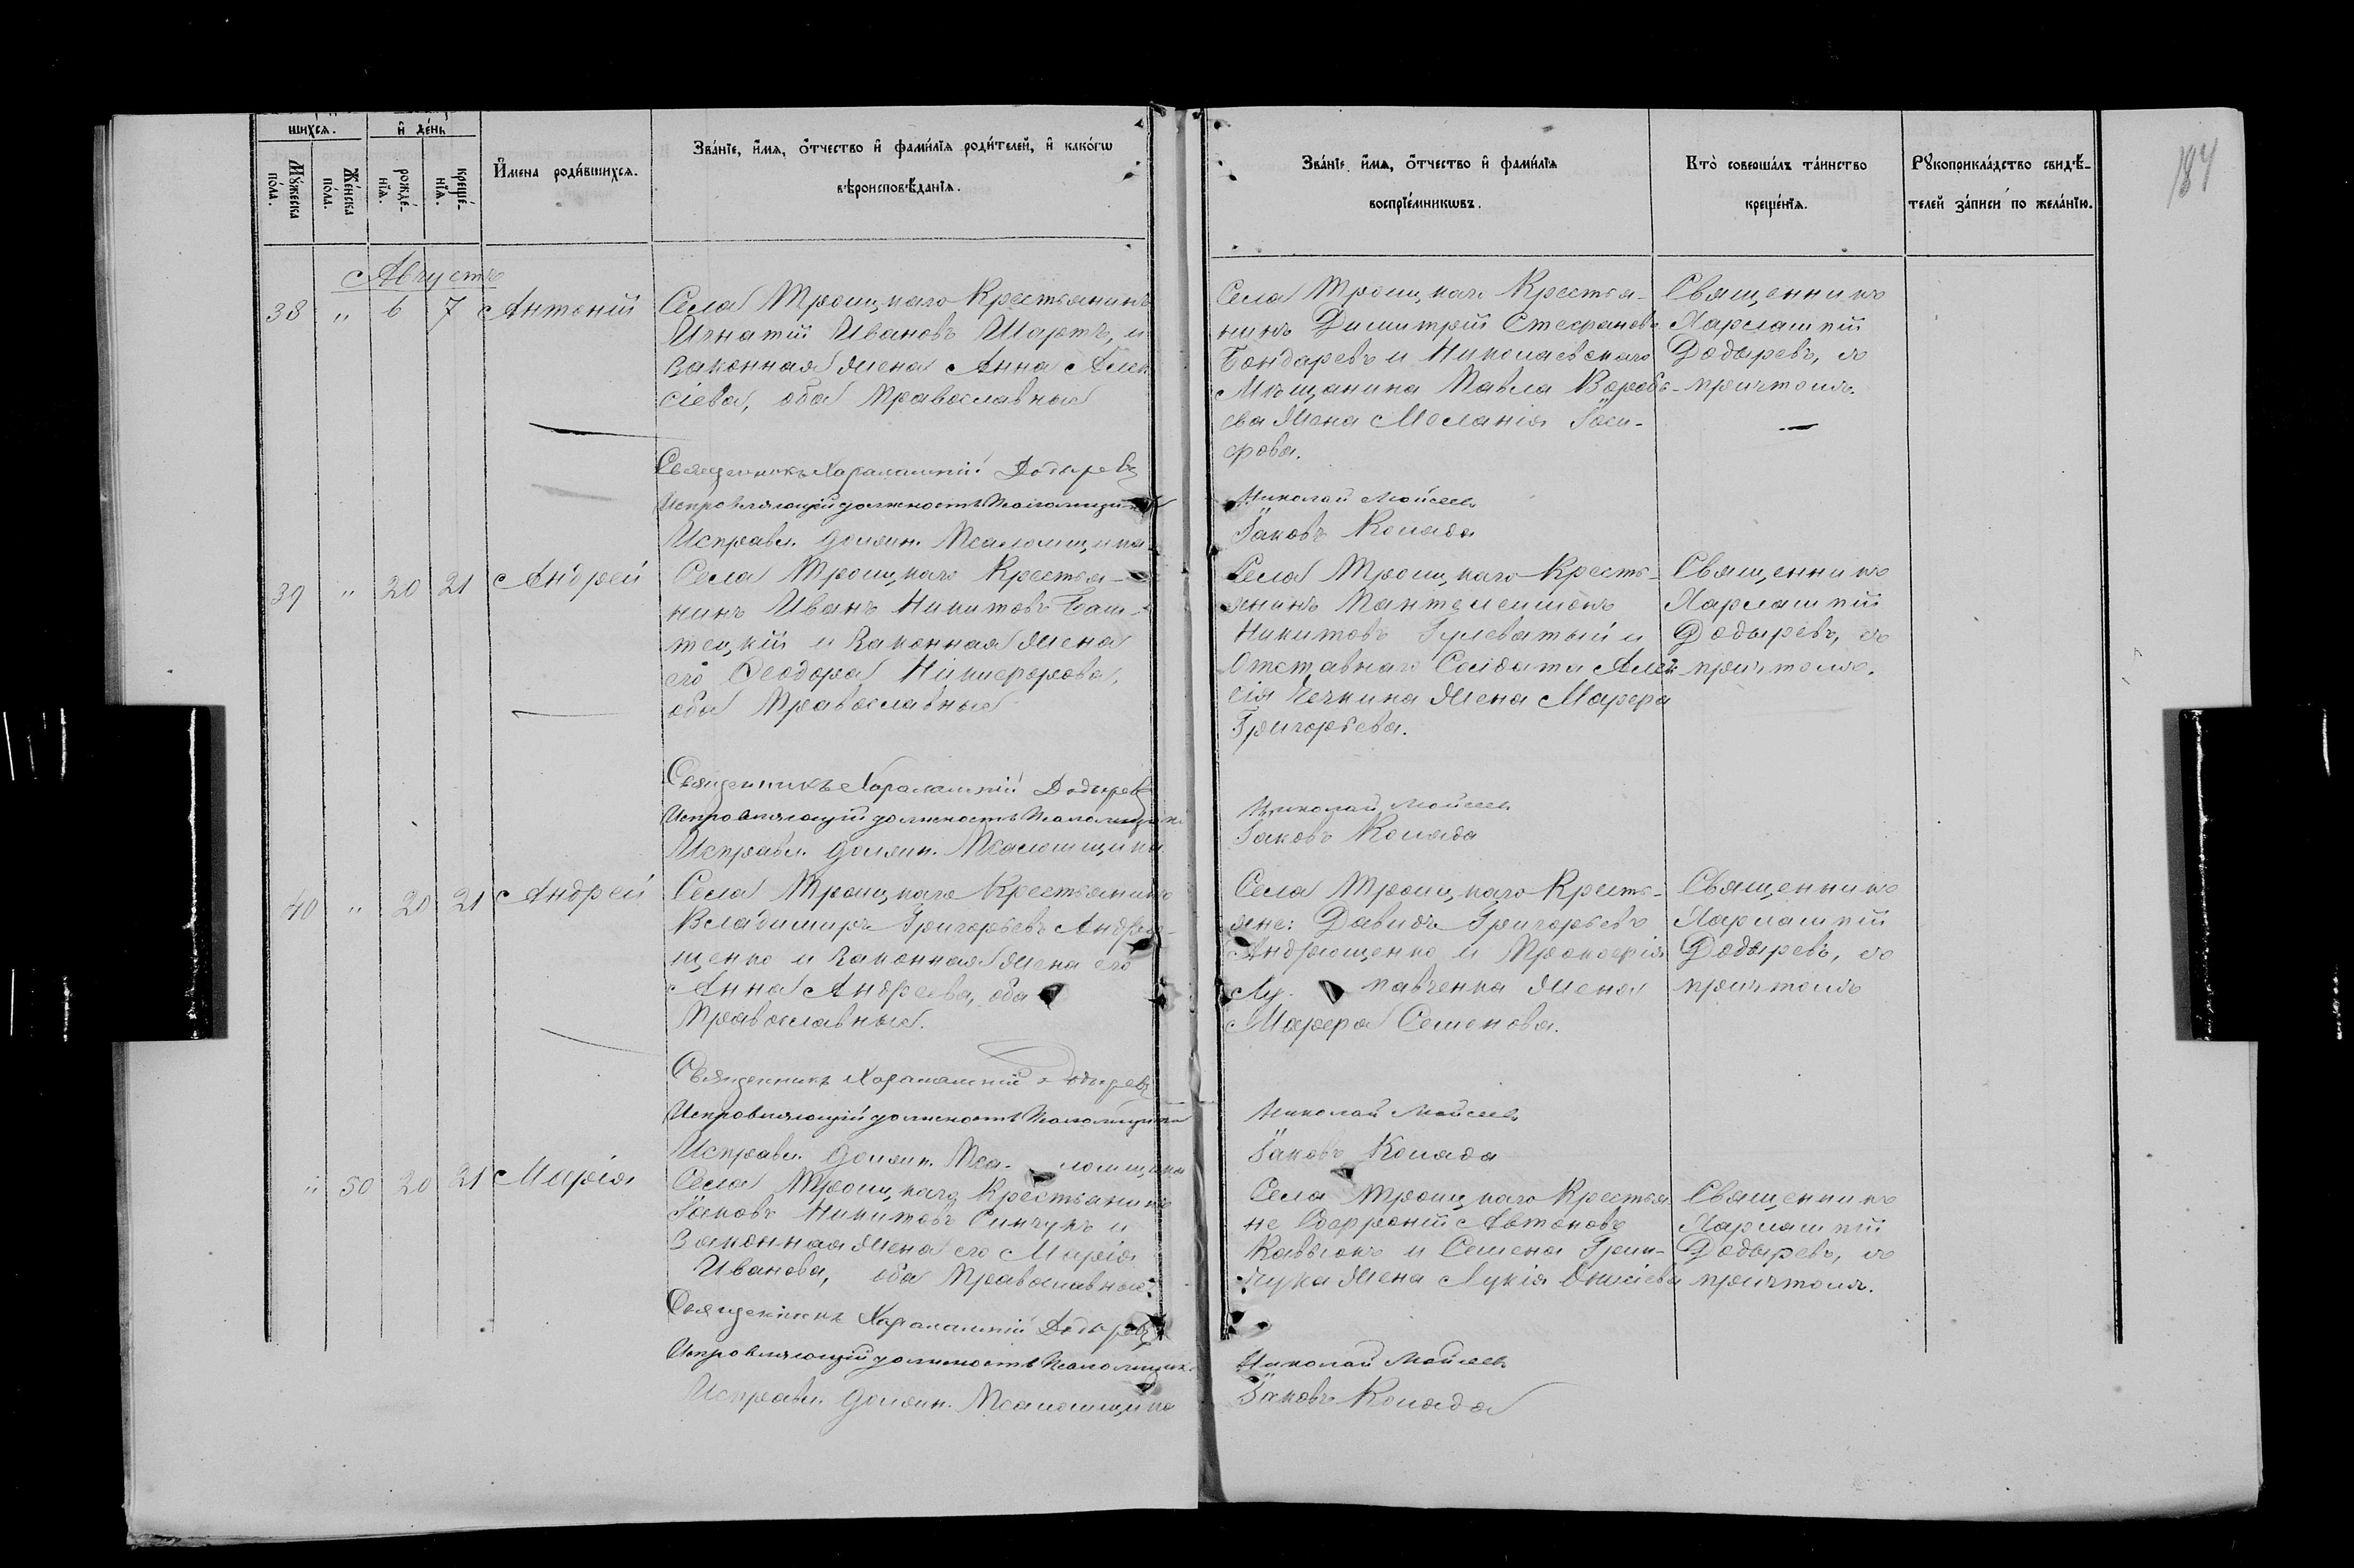 184
шихсѧ.
и҆ де́нь
Мꙋ́жеска по́ла.
Же́нска по́ла.
рожде́-
нїѧ.
креще́-
нїѧ.
И҆мена роди́вшихсѧ.
Зва́нїе, и҆́мѧ, ѻ҆́тчество и҆ фами́лїѧ роди́телей, и҆ како́гѡ
вѣроисповѣ́данїѧ.
Зва́нїе, и҆́мѧ, ѻ҆́тчество и҆ фами́лїѧ
воспрїе́мникѡвъ.
Кто̀ соверша́лъ та́инство
креще́нїѧ.
Рꙋкоприкла́дство свидѣ́-
телей за́писи по жела́нїю.
Августъ
38 " 6 7 Антоній
Села Троицкаго Крестьянинъ
Игнатій Ивановъ Шартъ, и
законная жена Анна Алек
сіева, оба православные
Села Троицкаго Крестья-
нинъ Димитрій Стефановъ
Бондаревъ и Николаевскаго
Мѣщанина Павла Воробь-
ева жена Меланія Іоси-
фова.
Священникъ
Харлампій
Додыревъ, съ
причтомъ.
Священникъ Харалампій Додыревъ
Исправляющій должность Псаломщика
Николай Мойсеевъ
Исправл. должн. Псаломщика
Іаковъ Коляда
39 " 20 21 Андрей
Села Троицкаго Крестья-
нинъ Иванъ Никитовъ Баш-
тецкій и законная жена
его Ѳеодора Никифорова,
оба православные
Села Троицкаго Кресть-
янинъ Пантелеимонъ
Никитовъ Гулеватый и
Отставнаго Солдата Алек
сія Чечкина жена Марфа
Григорьева.
Священникъ
Харлампій
Додыревъ, съ
причтомъ.
Священникъ Харалампій Додыревъ
Исправляющій должность Псаломщика
Николай Мойсеевъ
Исправл. должн. Псаломщика
Іаковъ Коляда
40 " 20 21 Андрей
Села Троицкаго Крестьянинъ
Владимиръ Григорьевъ Андрю-
щенко и законная жена его
Анна Андреева, оба
православные.
Села Троицкаго Кресть-
яне: Давидъ Григорьевъ
Андрющенко и Прокофія
Лу- павченка жена
Марфа Семенова.
Священникъ
Харлампій
Додыревъ, съ
причтомъ
Священникъ Харалампій Додыревъ
Исправляющій должность Псаломщика
Николай Мойсеевъ
Исправл. должн. Пса- ломщика
Іаковъ Коляда
" 50 20 21 Марія
Села Троицкаго Крестьянинъ
Іаковъ Никитовъ Синчукъ и
законная жена его Марія
Иванова, оба православные.
Села Троицкаго Крестья
не Софроній Автоновъ
Кавыокъ и Семена Грин-
чука жена Лукія
Священникъ
Харлампій
Додыревъ, съ
причтомъ.
Священникъ Харалампій Додыревъ
Исправляющій должность Псаломщика
Николай Мойсеевъ
Исправл. должн. Псаломщика
Іаковъ Коляда